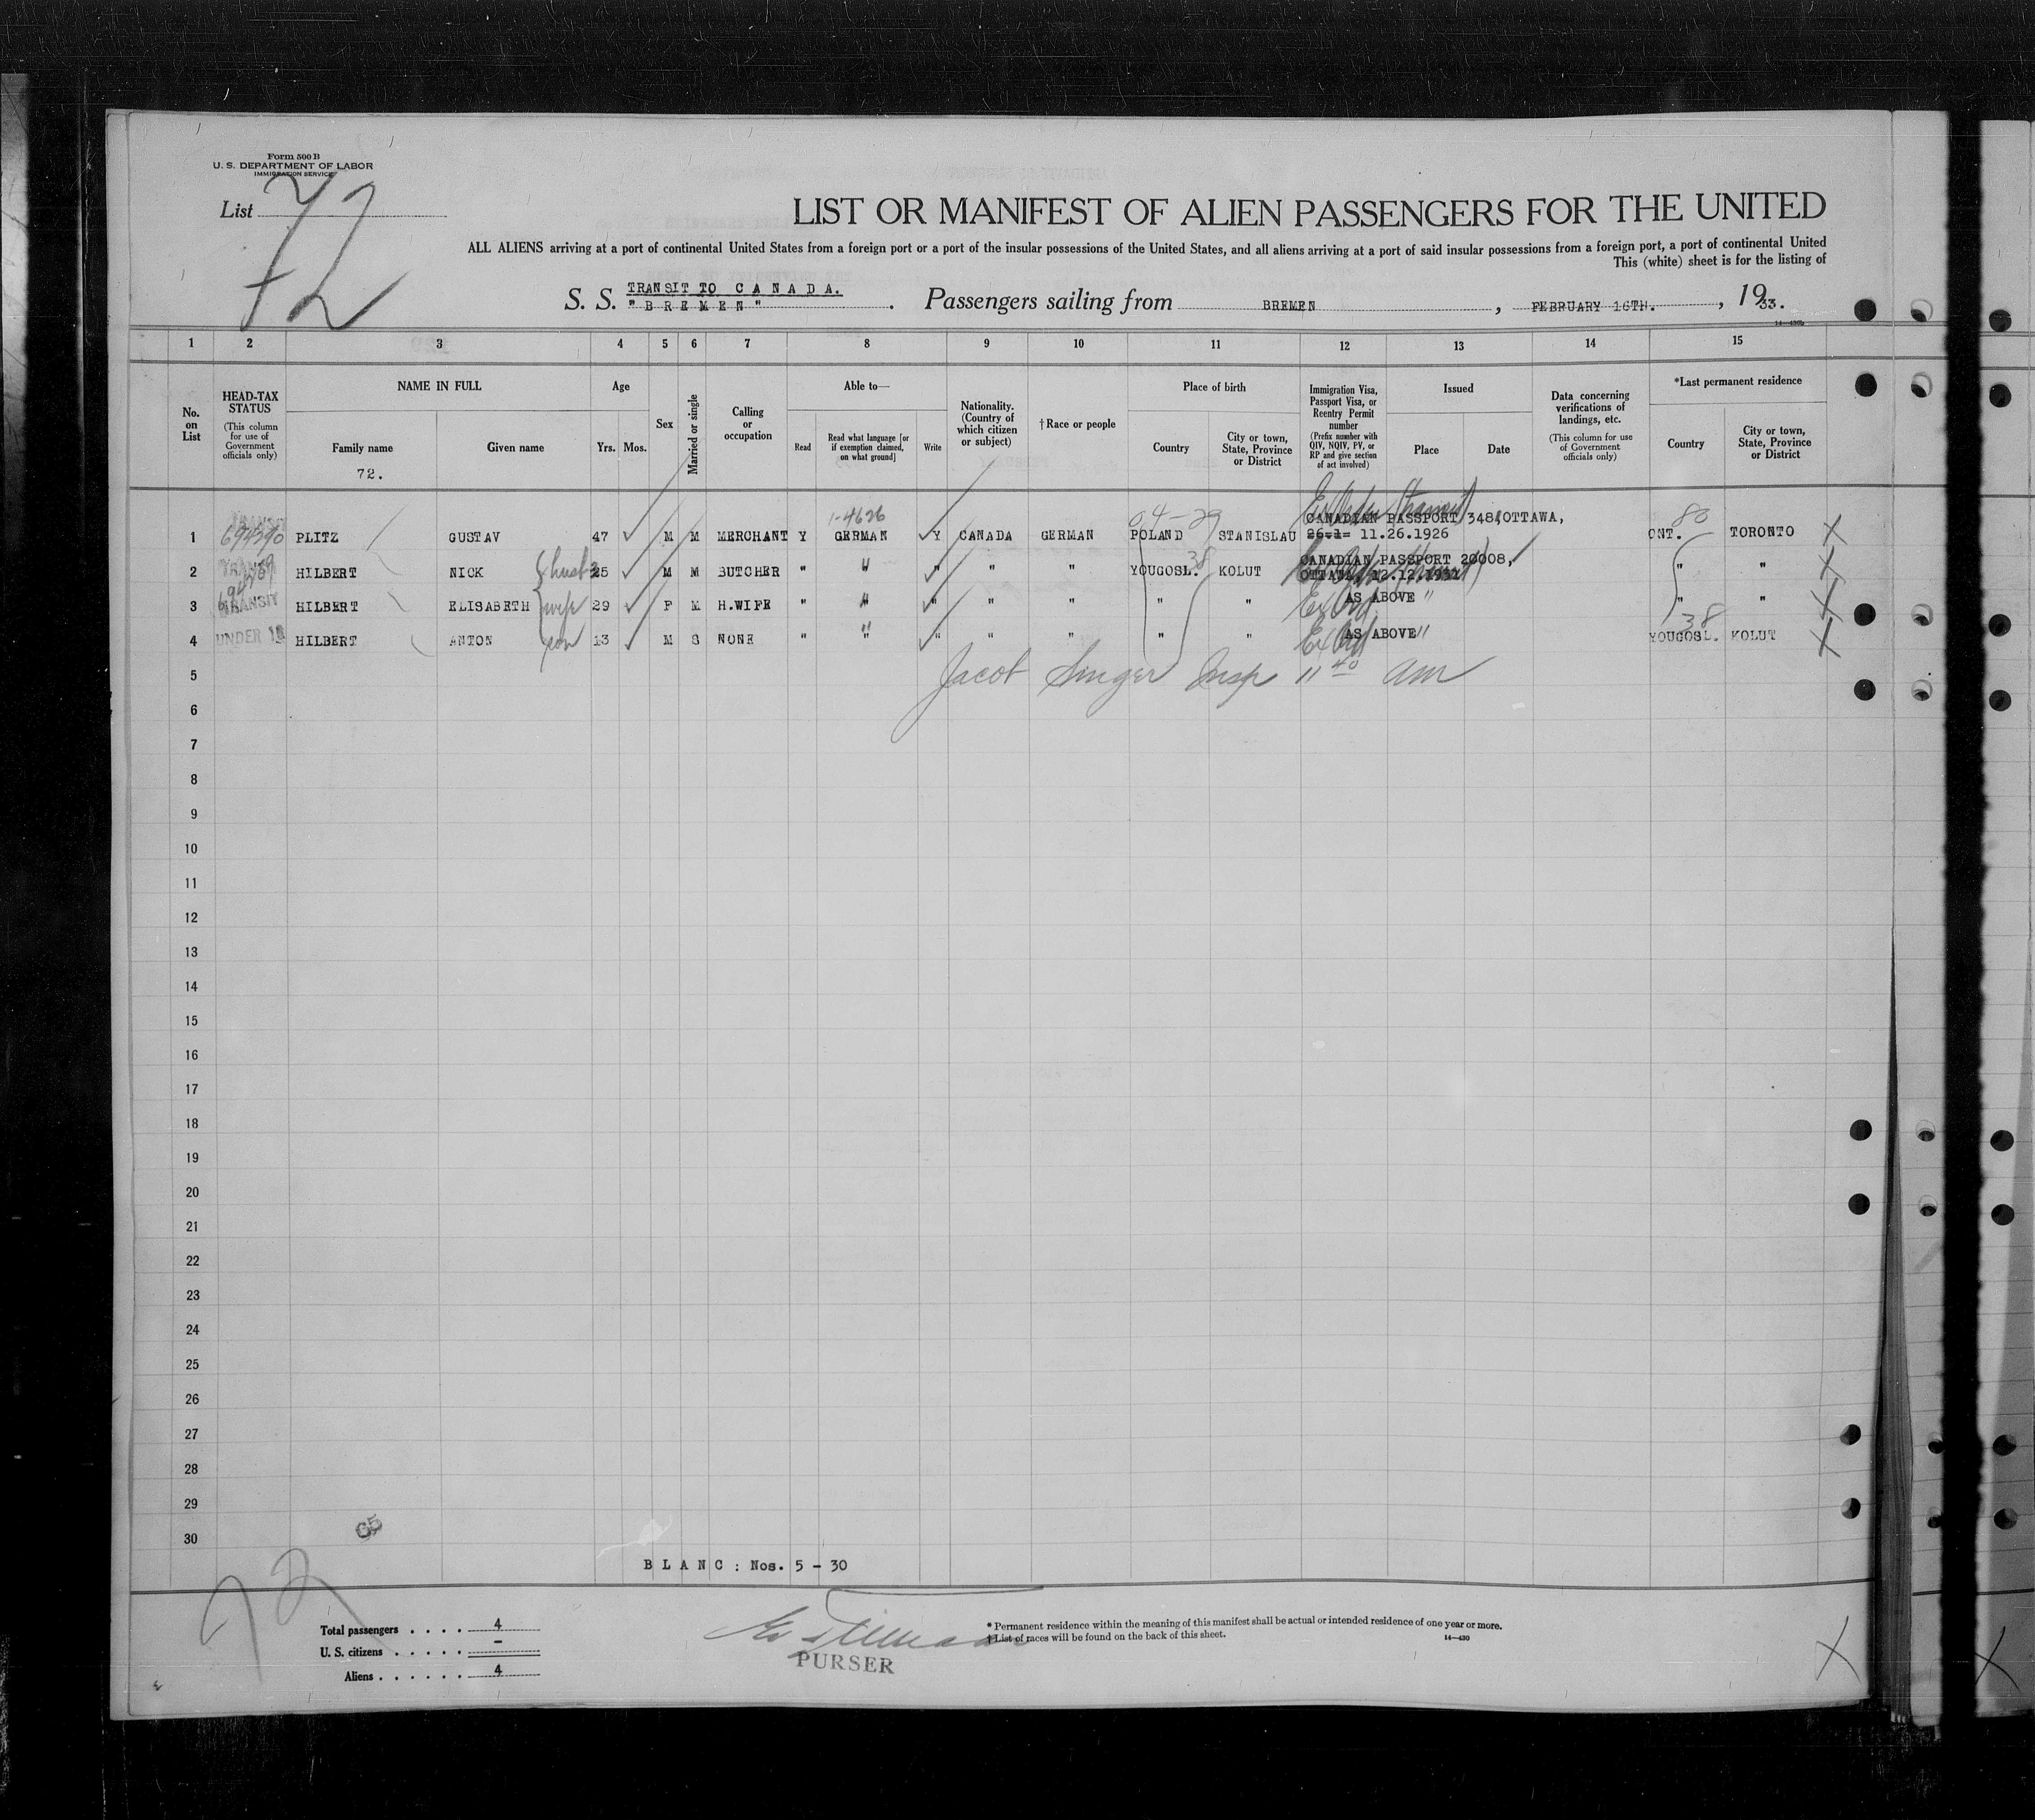 Form 500 B
U. S. DEPARTMENT OF LABOR
IMMIGRATION SERVICE
List 72
LIST OR MANIFEST OF ALIEN PASSENGERS FOR THE UNITED
ALL ALIENS arriving at a port of continental United States from a foreign port or a port of the insular possessions of the United States, and all aliens arriving at a port of said insular possessions from a foreign port, a port of continental United
This (white) sheet is for the listing of
TRANSIT TO C A N A D A.
S. S. "B R E M E N". Passengers sailing from BREMEN, FEBRUARY 16TH., 1933.
14—430b
1 2 3 4 5 6 7 8 9 10 11 12 13 14 15
No. on List
HEAD-TAX STATUS (This column for use of Government officials only)
NAME IN FULL
Family name
72.
Given name
Age
Yrs. Mos.
Sex
Married or single
Calling or occupation
Able to—
Read
Read what language [or if exemption claimed, on what ground]
Write
Nationality. (Country of which citizen or subject)
†Race or people
Place of birth
Country
City or town, State, Province or District
Immigration Visa, Passport Visa, or Reentry Permit number (Prefix number with QIV, NQIV, PV, or RP and give section of act involved)
Issued
Place
Date
Data concerning verifications of landings, etc. (This column for use of Government officials only)
*Last permanent residence
Country
City or town, State, Province or District
TRANSIT 1-4626 04-29 80
CANADIAN PASSPORT 348, OTTAWA,
1 PLITZ GUSTAV 47 M M MERCHANT Y GERMAN Y CANADA GERMAN POLAND STANISLAU 11.26.1926 ONT. TORONTO X
TRANSIT 38 CANADIAN PASSPORT 20008,
2 HILBERT NICK husb M M BUTCHER " " " " " YOUGOSL. KOLUT OTTAWA, 12.12.1931 " " X
TRANSIT
3 HILBERT ELISABETH wife 29 F M H.WIFE " " " " " " " AS ABOVE " " " X
38
4 UNDER HILBERT ANTON son 13 M S NONE " " " " " " " AS ABOVE " YOUGOSL. KOLUT X
5 Jacob Singer Insp 11 40 am
6
7
8
9
10
11
12
13
14
15
16
17
18
19
20
21
22
23
24
25
26
27
28
29
30
65
B L A N C : Nos. 5 - 30
72
Total passengers . . . . 4
U. S. citizens . . . . . -
Aliens . . . . . . 4
PURSER
* Permanent residence within the meaning of this manifest shall be actual or intended residence of one year or more.
† List of races will be found on the back of this sheet.
14—430
X
X